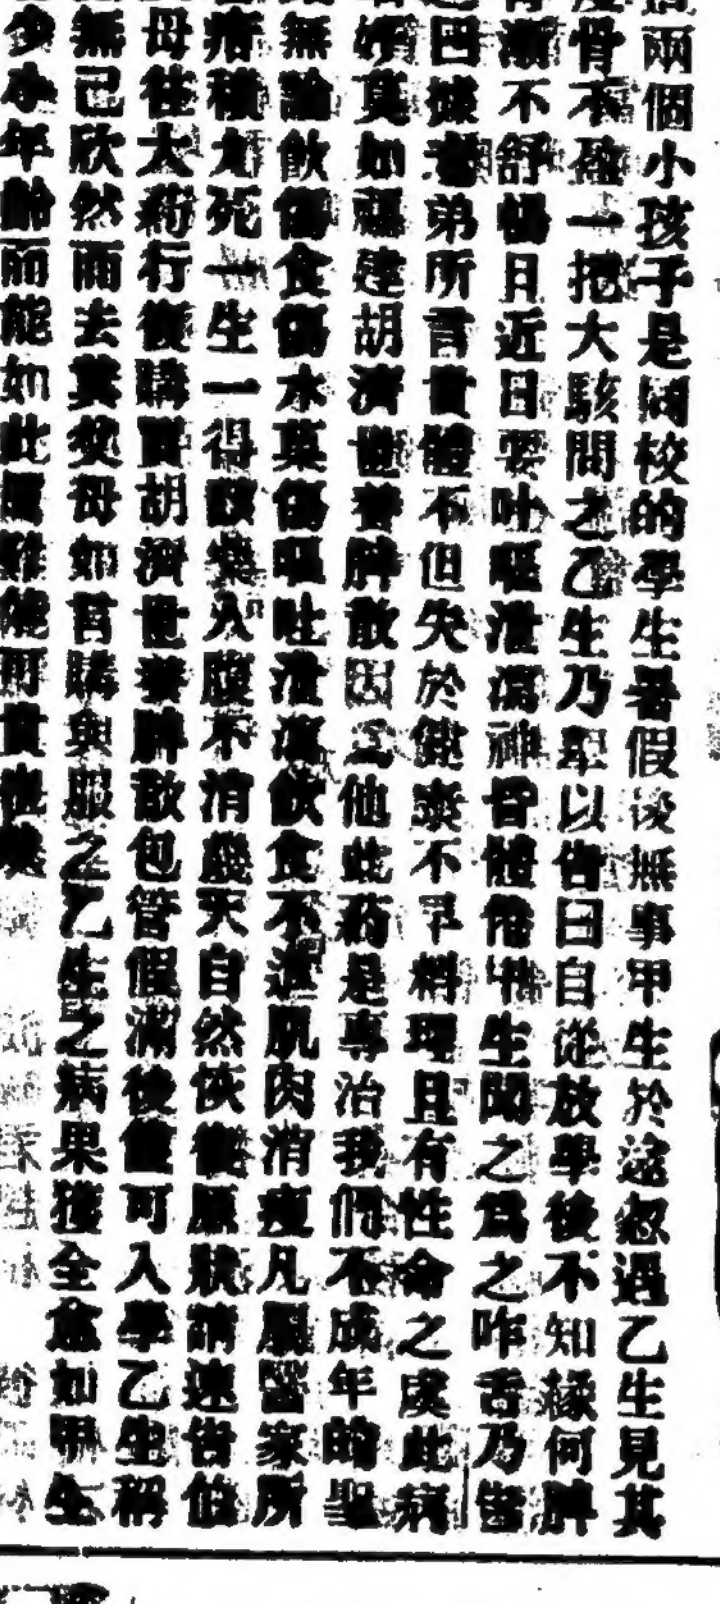 兩個小孩子是同校的學生暑假後無事甲生於途忽遇乙生見其
骨不盈一把大駭問之乙生乃率以告曰自從放學後不知緣何脾
漸不舒暢日近日要吐嘔泄瀉神昏體倦甲生聞之為之咋舌乃告
曰據老弟所言貴體不但失於健康不早料理且有性命之虞此病
莫如福建胡濟世養脾散因為他此葯是專治我們不成年的聖
無論飲傷食傷水菓傷嘔吐泄瀉飲食不進肌肉消瘦凡屬醫家所
積九死一生一得散藥入腹不消幾天自然恢復原狀請速告伯
母往大葯行復購買胡濟世養脾散包管假滿後僅可入學乙生稱
無已欣然而去其父母如言購與服之乙生之病果獲全愈如甲生
少小年齡而能如此關雖能可貴也矣